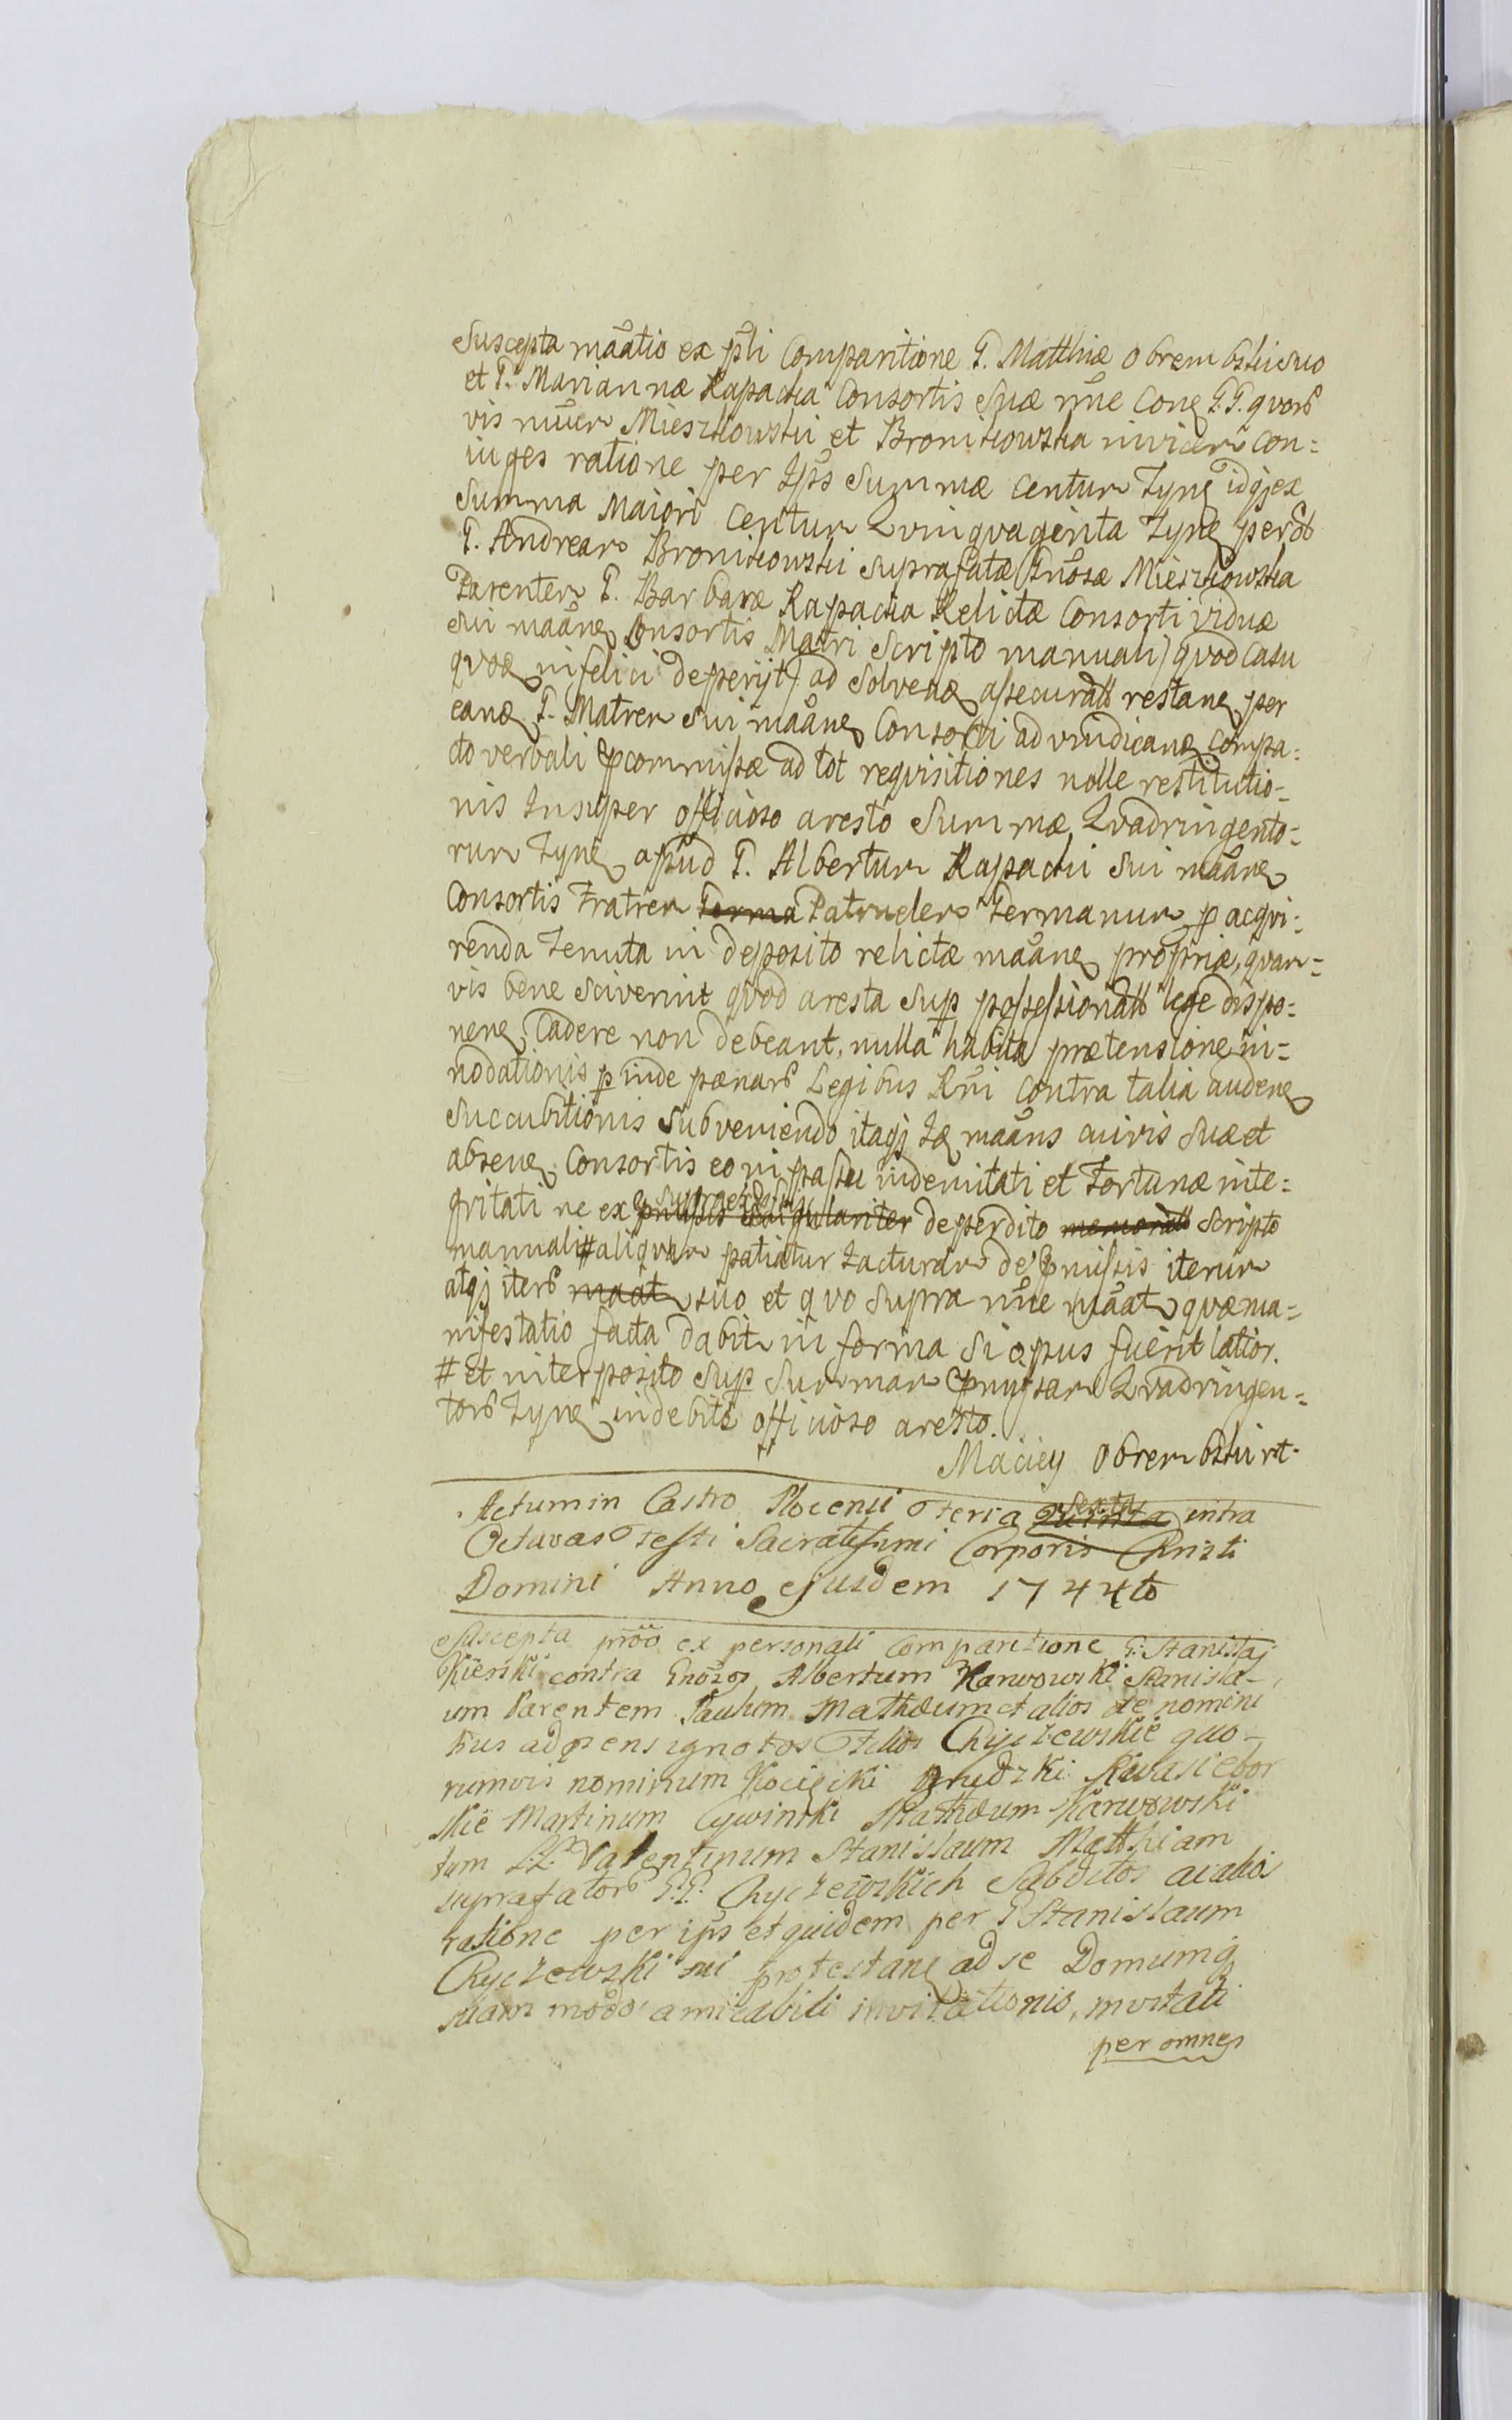 Suscepta maãtio ex pti Comparitione G. Matthiæ Obrembski suo
et G. Mariannæ Rapacka Consortis Suæ nñe Cong G.G. qvorũ
vis nuũer Mieszkowski et Bronikowska invicem con=
iuges ratione per Ips Summæ Centum Tyne idqȝ ex
Summa Maiori Centum Qvinqvaginta Tyne per olȝ
G. Andream Bronikowski Suprafatæ Gnosæ Mieszkowska
Parentem G. Barbaræ Rapacka Relictæ Consorti viduæ
Sui maãne Consortis Matri Scripto manuali) qvod casu
qvoȝ infelici deperijt) ad Solvenȝ assecuratȝ restanȝ per
eanȝ G. Matrem Sui maãne Consorti ad vindicanȝ Compa=
cto verbali Commissæ ad tot reqvisitiones nolle restitutio=
nis Insuper officioso aresto Summæ Qvadringento=
rum Tyne apud G. Albertum Rapacki Sui maãne
Consortis Fratrem Germa Patruelem Germanum p acqvi=
renda Tenuta in deposito relictæ maãne propriæ, qvam=
vis bene Sciverint qvod aresta Sup possessionatȝ lege dispo=
nene Cadere non debeant, nulla habita prætensione, in=
nodationis p inde pænarũ Legibus Rñi Contra talia audene
Succubitionis Subveniendo itaqȝ Iȝ maãns cuivis Suæ et
absenȝ Consortis eo in passu indemnitati et Fortunæ inte=
gritati ne ex præmissis deperdito memoratȝ Scripto
manuali # aliqvam patiatur Iacturam de præmissis iterum
atqȝ iterũ maat suo et qvo Supra nñe maãt qvæ ma=
nifestatio facta dabit in forma Si opus fuerit latior.
# et interposito Sup Summam præmissam Qvadringen=
torũ Tyne indebite officioso aresto.
Maciey Obrembski mt
Actum in Castro Plocensi Feria Quinta sexta intra
Octavas Festi Sacratissimi Corporis Christi
Domini Anno ejusdem 1744to
Suscepta prõo ex personali Comparitione G. Stanislaj
Kierski contra Gnosos Albertum Karwowski Stanisla-
um Parentem Paulum Mathæum et alios de nomini
bus ad præsens ignotos Filios Chyczewskie quo-
rumvis nominum Kocięcki Grudzki Kwasiebor
skie Martinum Cywinski Mathæum Karwowski
tum L.L. Valentinum Stanislaum Matthiam
suprafatorũ G.G. Chyczewskich Subditos ac alios
ratione per ips et quidem per G Stanislaum
Chyczewski sui protestanȝ ad se Domumqȝ
suam modo amicabili invitationis, invitati
per omnes